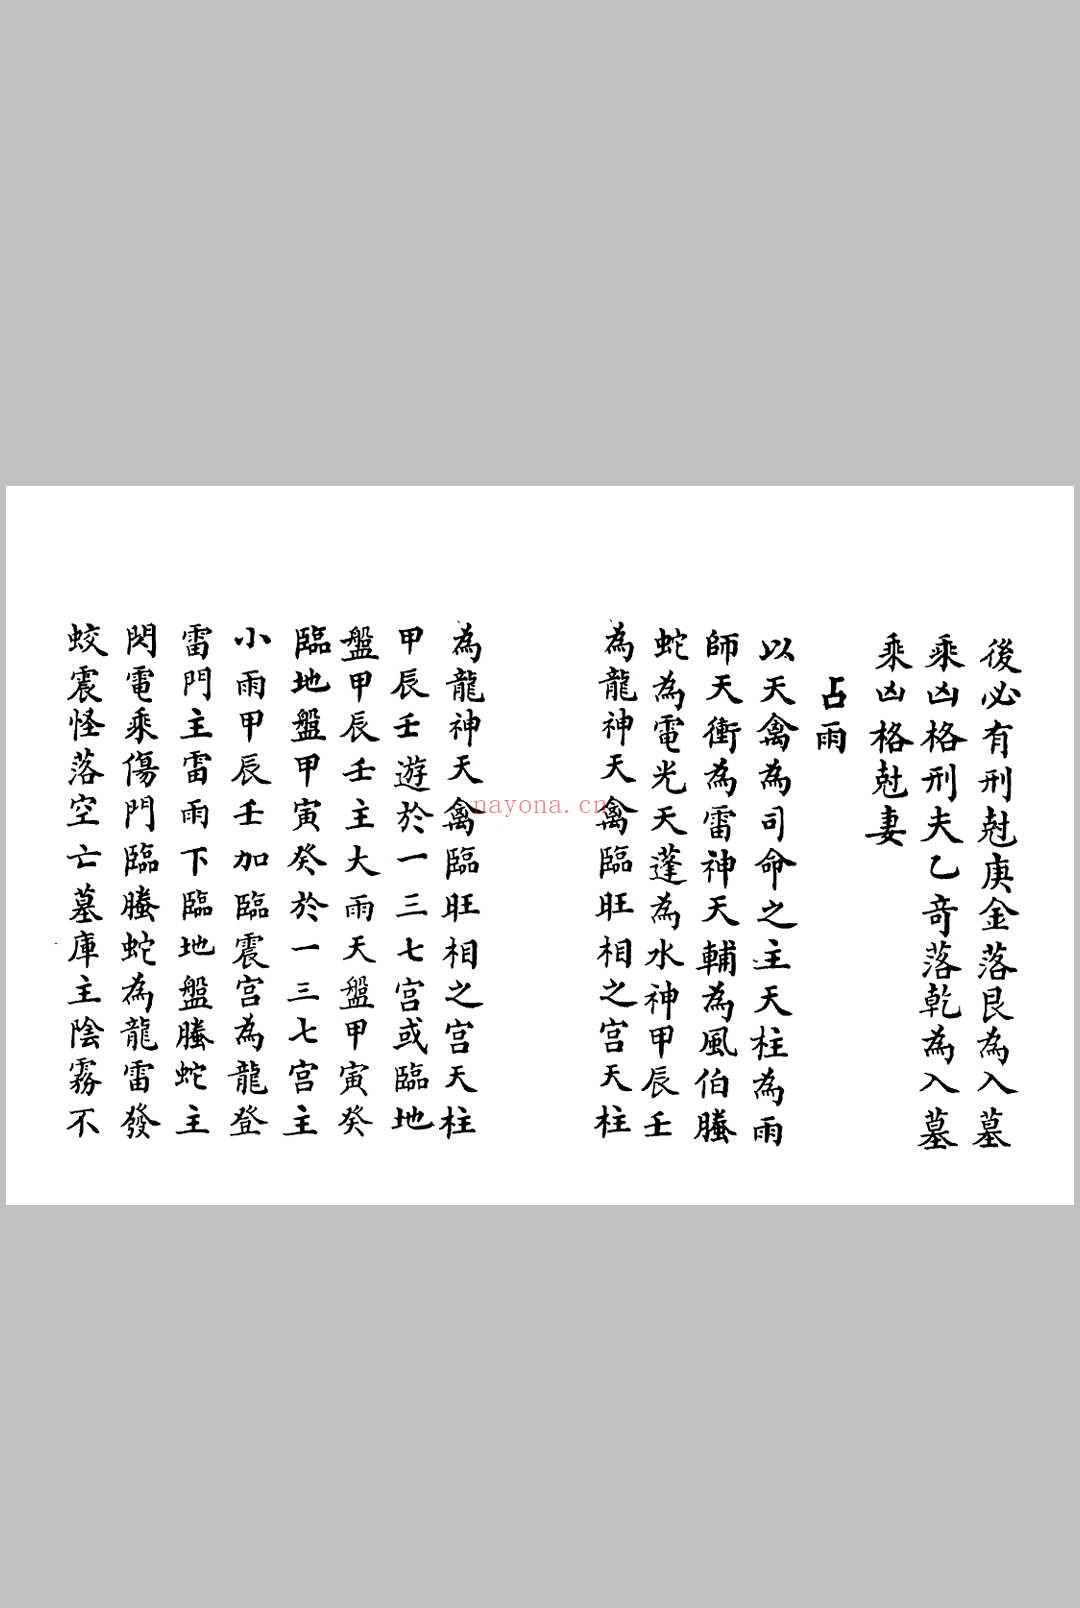 後必有刑尅庚金落艮為入墓
乘凶格刑夫乙竒落乾為入墓
乘凶格尅妻
占雨
以天禽為司命之主天柱為雨
師天衝為雷神天輔為風伯螣
蛇為電光天蓬為水神甲辰壬
為龍神天禽臨旺相之宮天柱
為龍神天禽臨旺相之宮天柱
甲辰壬遊於一三七宮或臨地
盤甲辰壬主大雨天盤甲寅癸
臨地盤甲寅癸於一三七宮主
小雨甲辰壬加臨震宮為龍登
雷門主雷雨下臨地盤螣蛇主
閃電乘傷門臨螣蛇為龍雷發
蛟震怪落空亡墓庫主陰霧不
nayona.cn